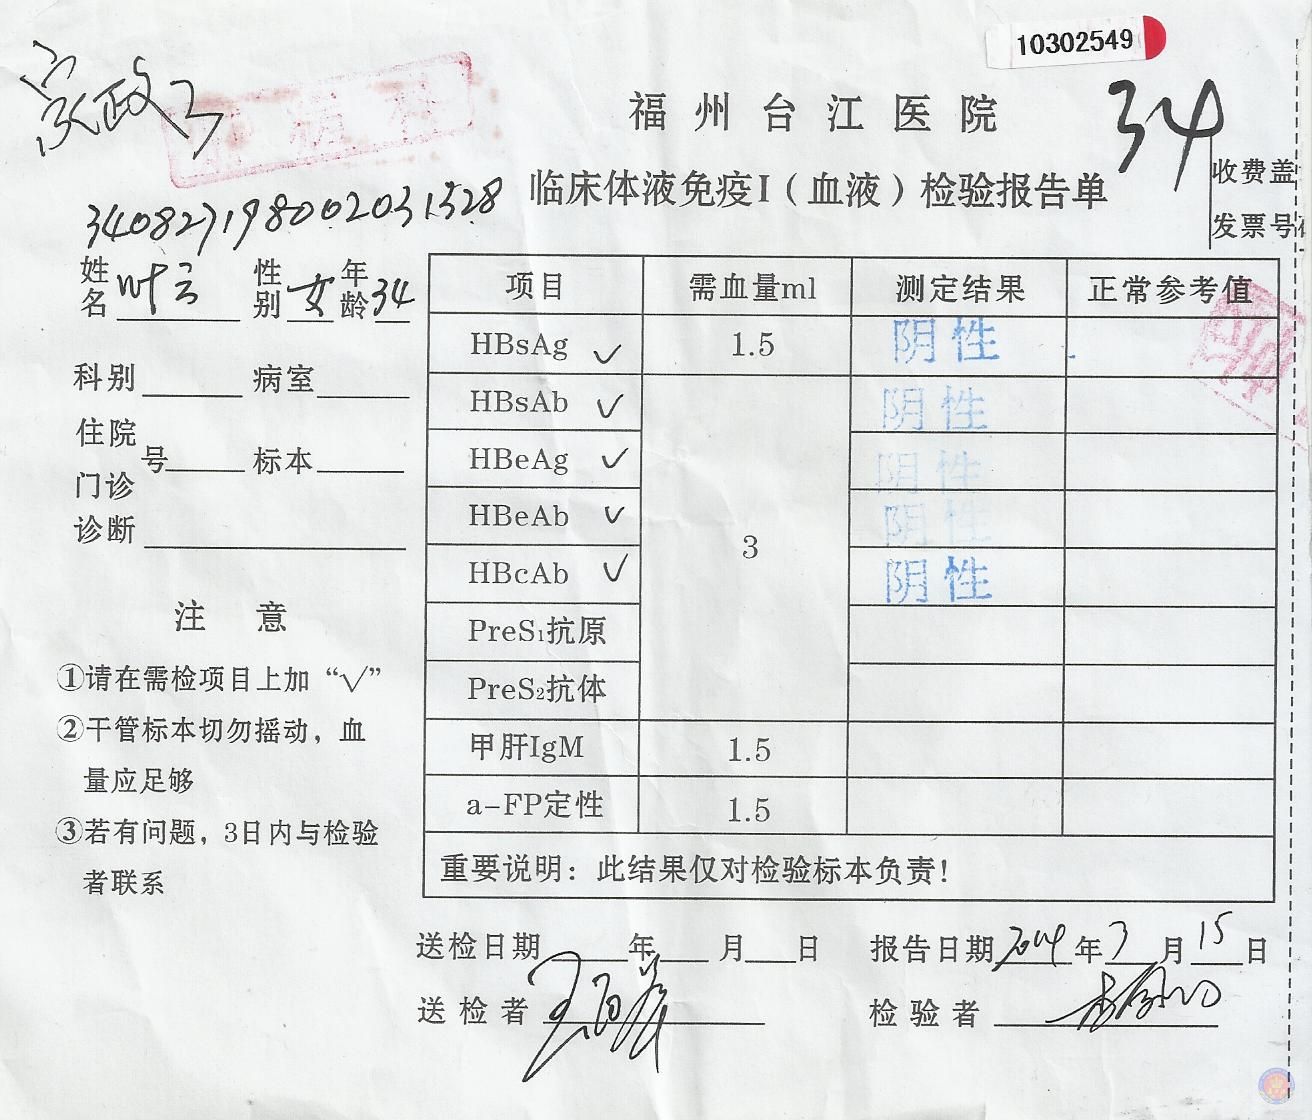 10302549
家政
34
福州台江医院
收费盖
临床体液免疫I（血液）检验报告单
发票号
340827198002031528
姓名 叶云 性别 女 年龄 34
科别 病室
住院
门诊 号 标本
诊断
注 意
①请在需检项目上加“√”
②干管标本切勿摇动，血
量应足够
③若有问题，3日内与检验
者联系
项目 需血量ml 测定结果 正常参考值
HBsAg ✓ 1.5 阴性
HBsAb ✓ 阴性
HBeAg ✓ 阴性
HBeAb ✓ 3 阴性
HBcAb ✓ 阴性
PreS₁抗原
PreS₂抗体
甲肝IgM 1.5
a-FP定性 1.5
重要说明：此结果仅对检验标本负责！
送检日期 年 月 日 报告日期 2014 年 3 月 15 日
送检者 检验者